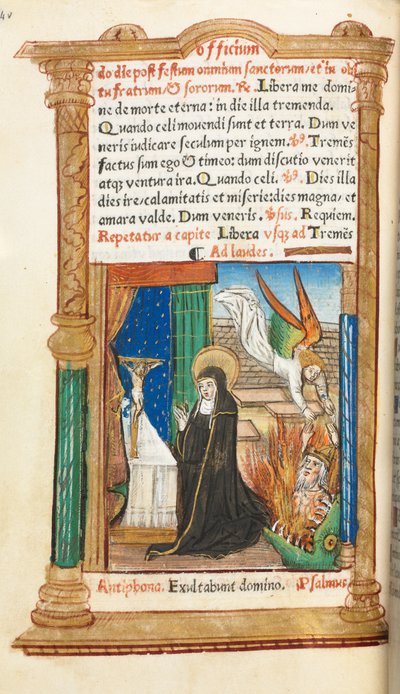 officium
do die post festum omnium sanctorum/et in obi
tu fratrum/& sororum. Re Libera me domi
ne de morte eterna: in die illa tremenda.
Quando celi mouendi sunt et terra. Dum ve
neris iudicare seculum per ignem. Tremēs
factus sum ego & timeo: dum discutio venerit
atq; ventura ira. Quando celi. Dies illa
dies ire/calamitatis et miserie: dies magna/et
amara valde. Dum veneris. Requiem.
Repetatur a capite Libera vsq; ad Tremēs
Ad laudes.
Antiphona. Exultabunt domino. Psalmus